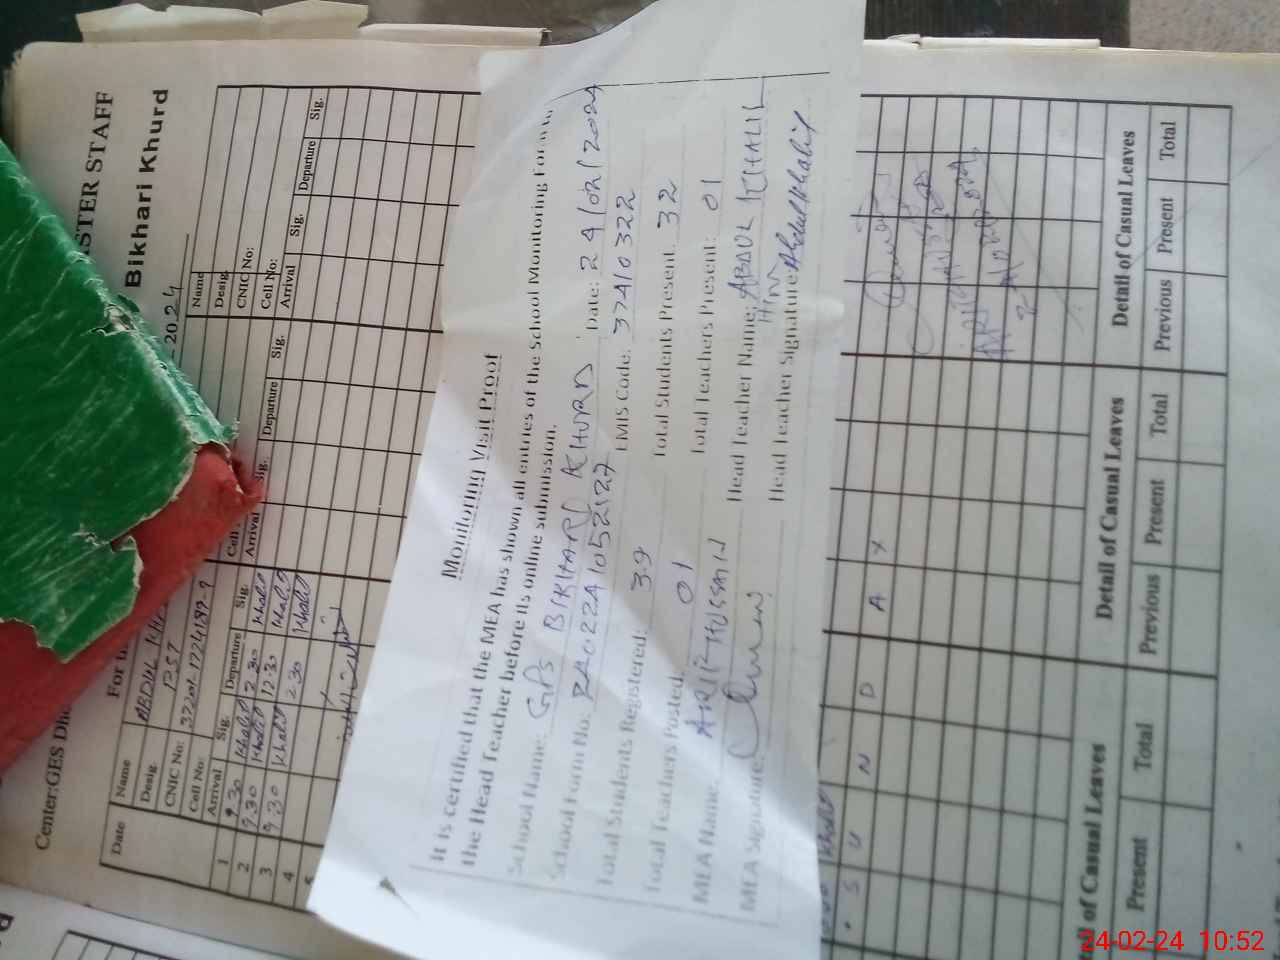 STER STAFF
Bikhari Khurd
Center:GES Dhe
For
2024
Date
Name
Desig.
CNIC No:
Cell No:
Arrival Sig. Departure Sig.
ABDUL
1257
1 9.30 Khalid 2.30 Khalid
2 9.30 Khalid 12.30 Khalid
3 9.30 Khalid 2.30 Khalid
4
Cell
Arrival Sig. Departure Sig.
Name
Desig.
CNIC No:
Cell No:
Arrival Sig. Departure Sig.
Monitoring Visit Proof
It is certified that the MEA has shown all entries of the School Monitoring Form to
the Head Teacher before its online submission.
School Name: GPS BIKHARI KHURD Date: 24/02/2024
School Form No: EMIS Code: 37410322
Total Students Registered: 39 Total Students Present: 32
Total Teachers Posted: 01 Total Teachers Present: 01
MEA Name: ARIF HUSSAIN Head Teacher Name: ABDUL KHALIK
MEA Signature: Head Teacher Signature: Abdul Khalik
S U N D A Y
Detail of Casual Leaves
Previous Present Total
Detail of Casual Leaves
Previous Present Total
tal of Casual Leaves
Present Total
24-02-24 10:52